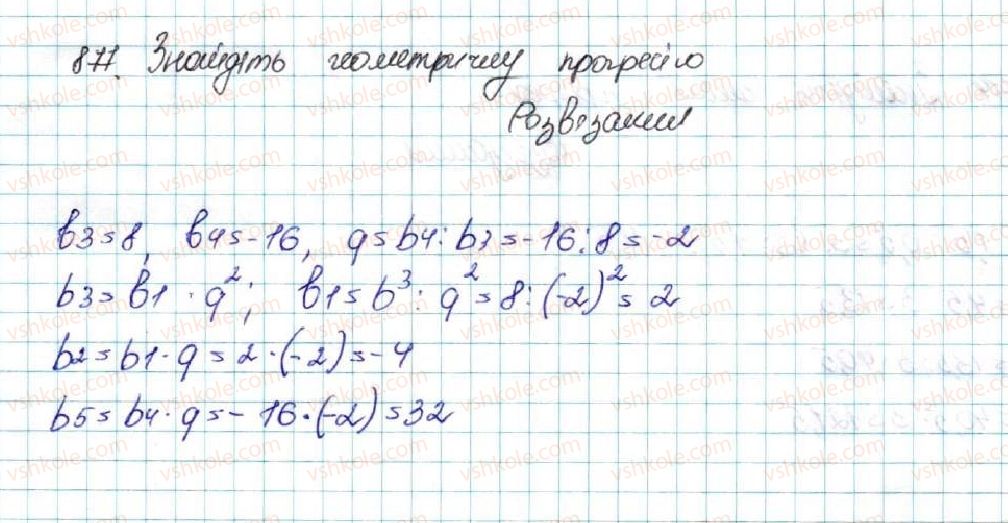 877. Знайдіть геометричну прогресію
Розв'язання
b3=8, b4=-16, q=b4:b3=-16:8=-2
b3=b1·q²; b1=b³:q²=8:(-2)²=2
b2=b1·q=2·(-2)=-4
b5=b4·q=-16·(-2)=32